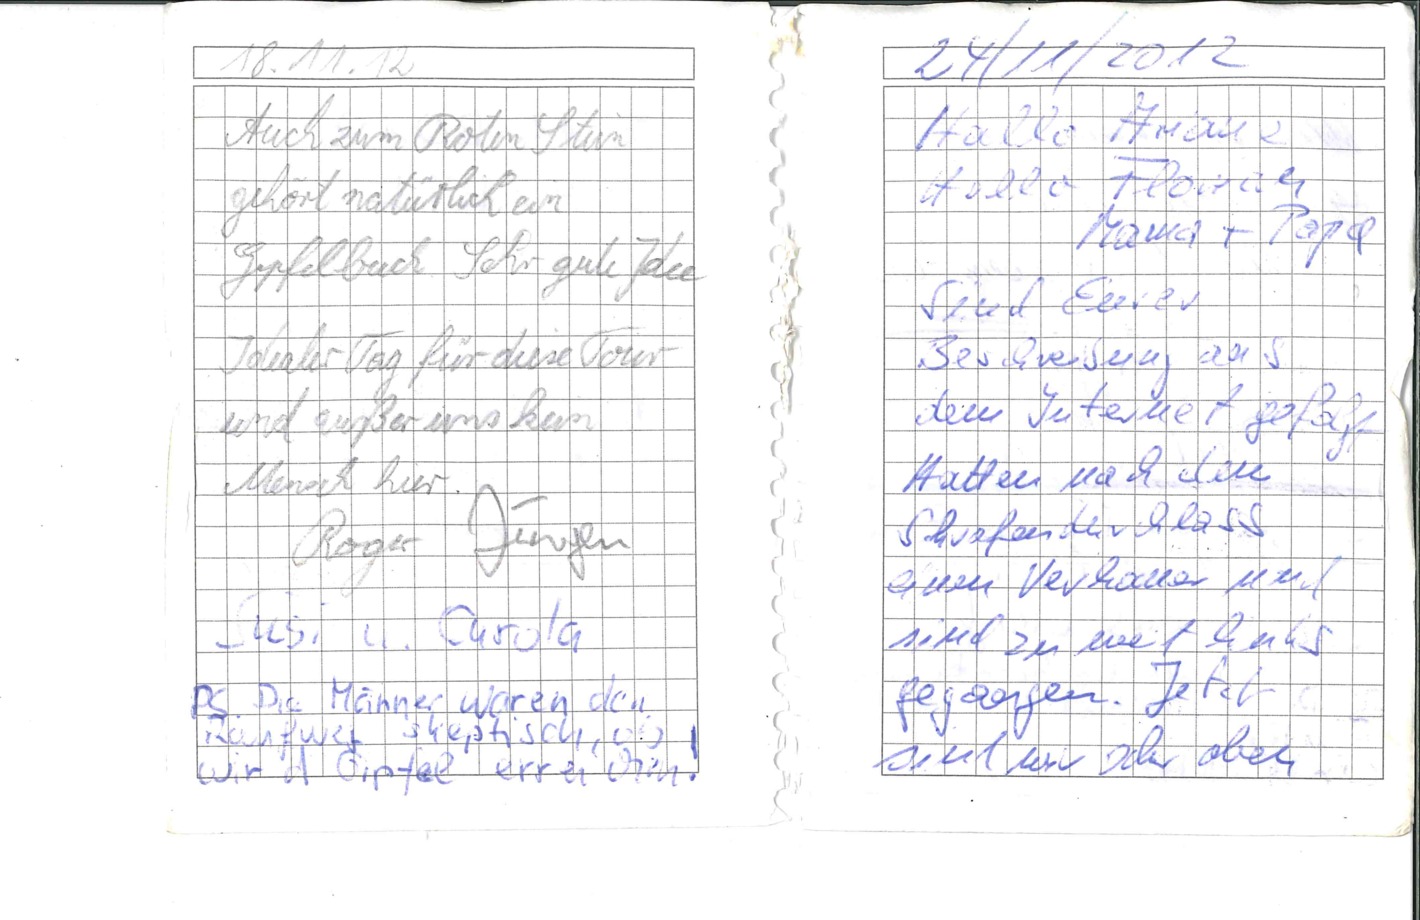 18.11.12
Auch zum Roten Stein
gehört natürlich ein
Gipfelbuch Sehr gute Idee
Idealer Tag für diese Tour
und außer uns kein
Mensch hier.
Roger Jürgen
Susi u. Carola
PS. Die Männer waren den
skeptisch, ob
wir d Gipfel erreichen!
24/11/2012
Hallo Ariane
Hallo Florian
Mama + Papa
Sind Eurer
Beschreibung aus
dem Internet gefolgt
Hatten nach dem
Schrofendurchlass
einen Verhauer und
sind zu weit links
gegangen. Jetzt
sind wir aber oben